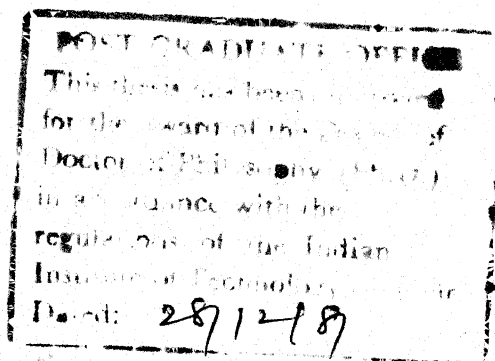 POST GRADUATE OFFICE
This thesis has been
for the award of the Degree of
Doctor of Philosophy (Ph.D.)
in accordance with the
regulations of the Indian
Institute of Technology
Dated: 28/12/87